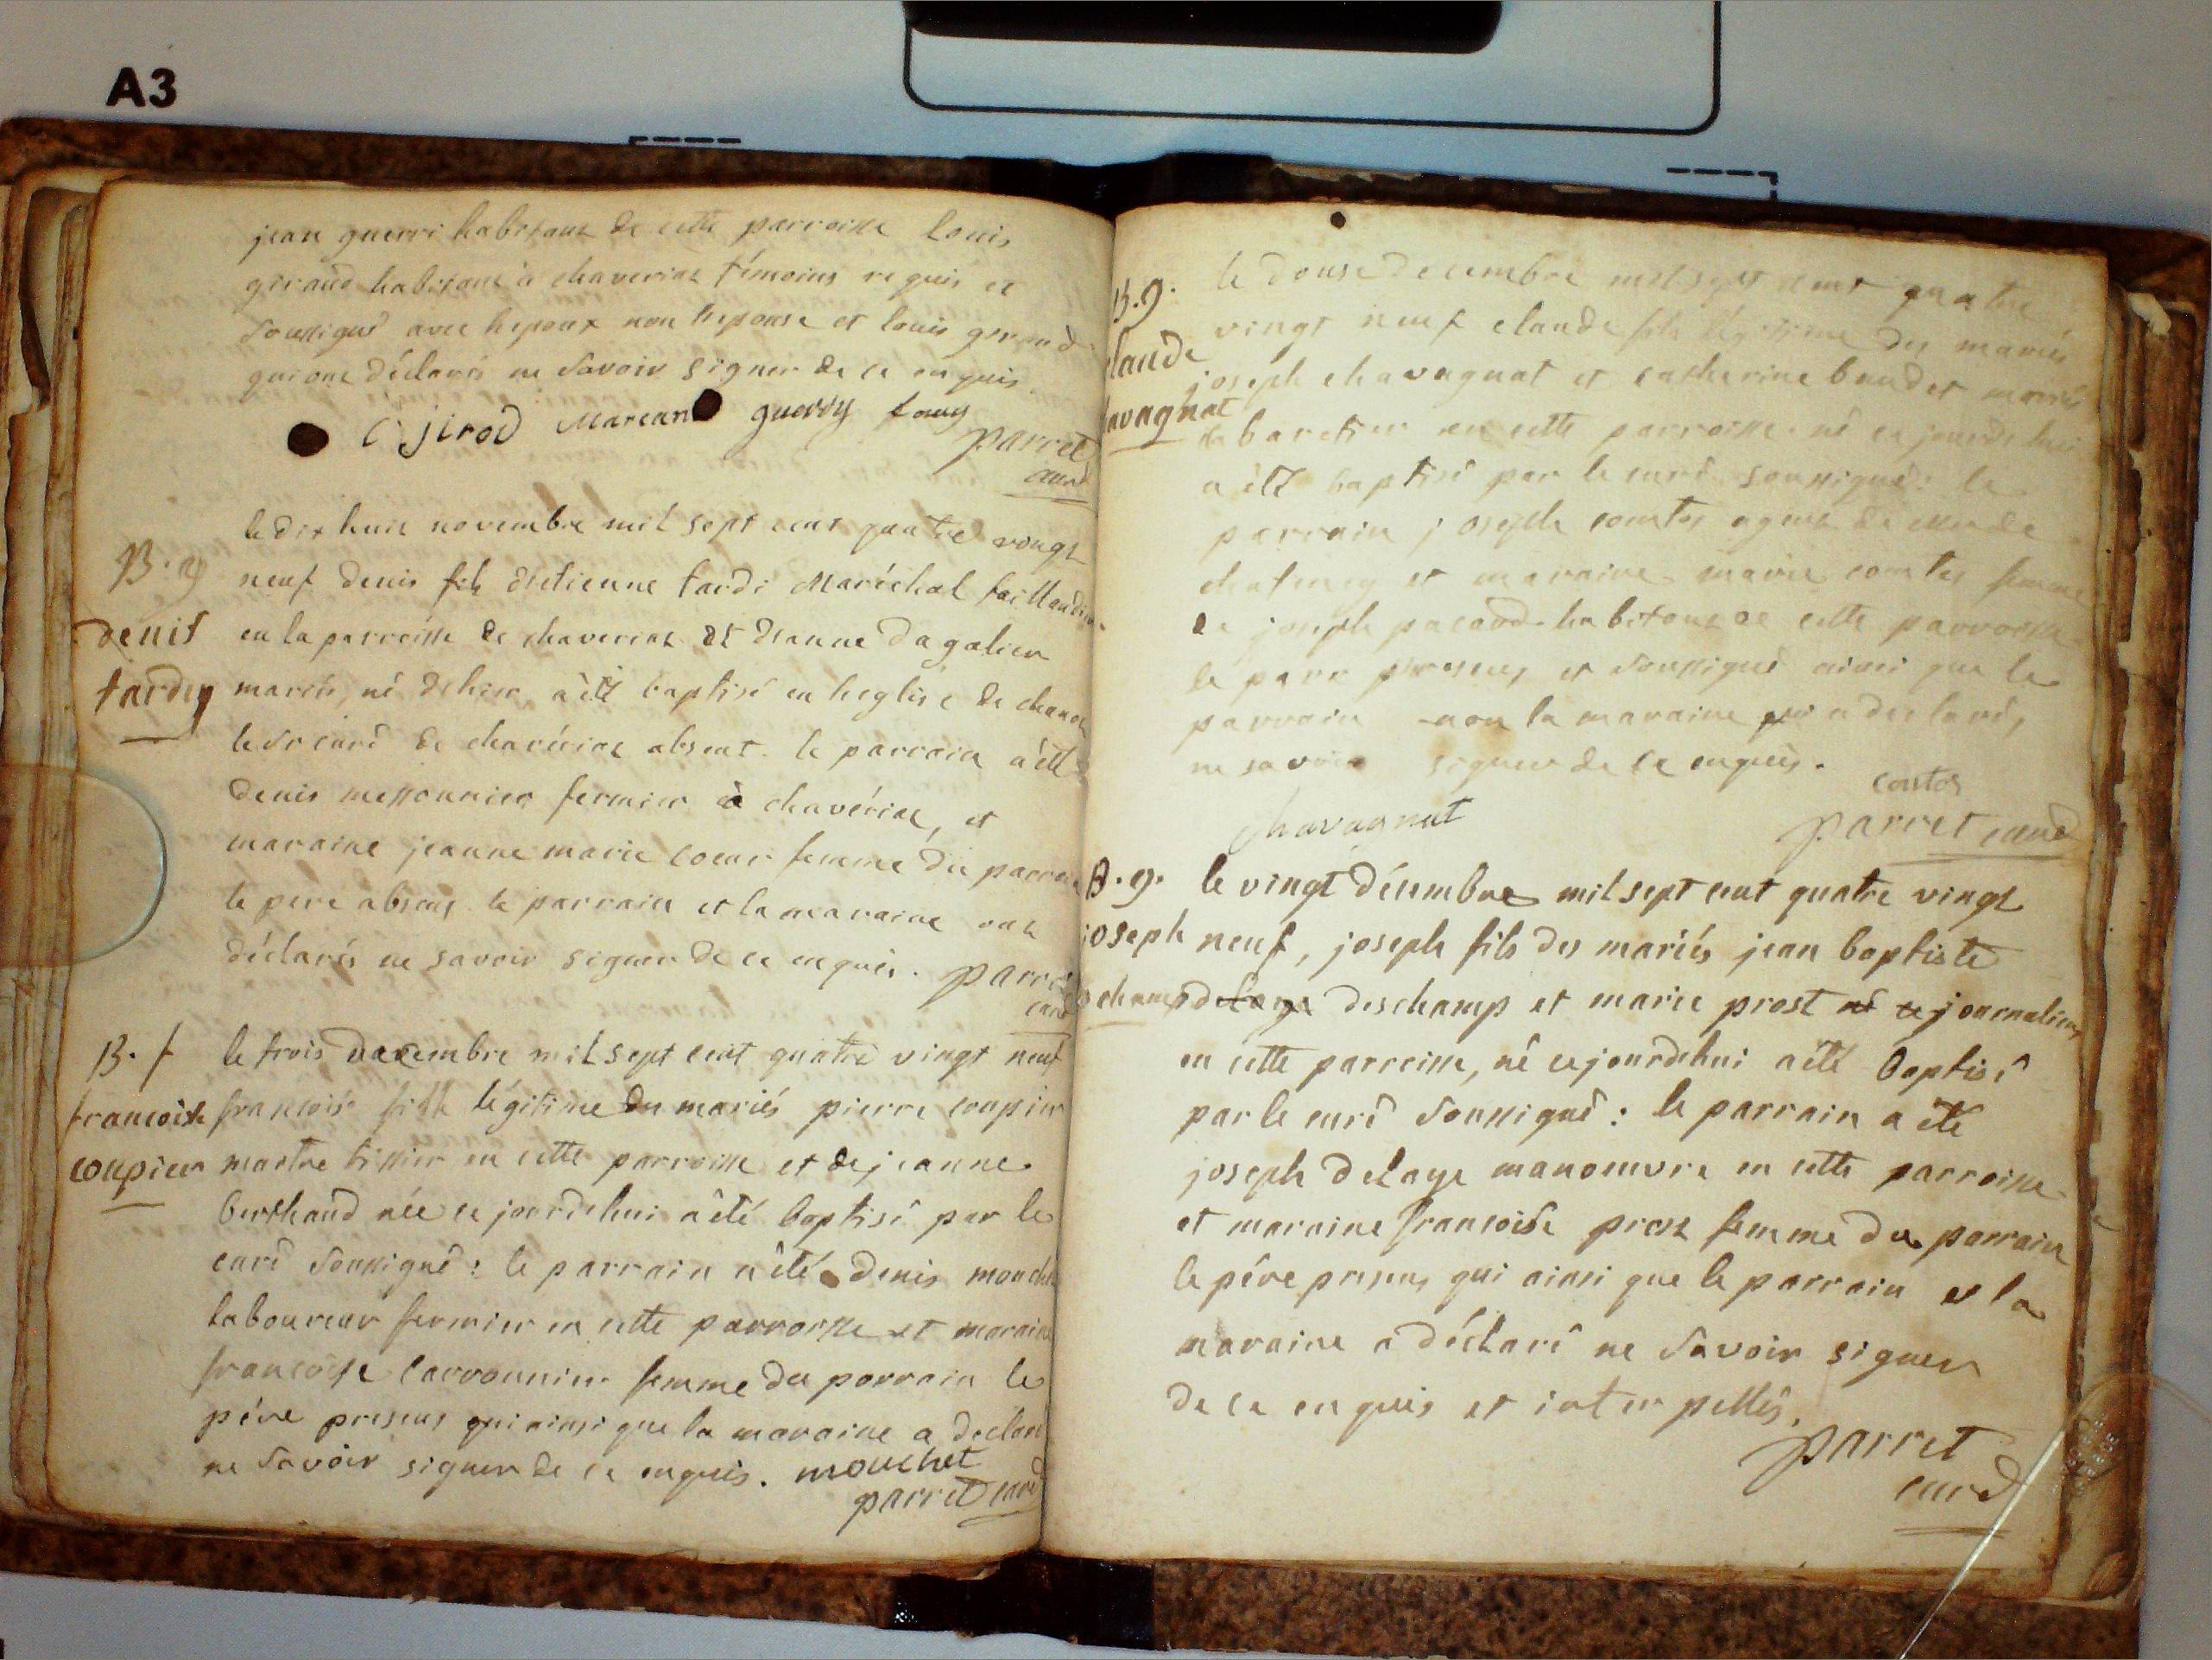 A3
jean guerri habitant de cette parroisse louis
giraud habitant à chaveriat témoins requis et
soussigné avec lepoux non lepouse et louis giraud
qui ont déclarés ne savoir signer de ce enquis
C jirod Marean guerry
parret
curé
le dix huit novembre mil sept cent quatre vingt
B. g
neuf denis fils d'etienne tardi Maréchal taillandier
denis
en la parroisse de chaveriat et d'anne dagalier
tardy
mariés, né d'hier, a été baptisé en l'eglise de
le sr curé de chavériat absent. le parrain a été
denis messonnier fermier à chavériat, et
maraine jeanne marie coeur femme du parrain
le pere absent le parrain et la maraine ont
déclarés ne savoir signer de ce enquis. parret
curé
B. f
le trois decembre mil sept cent quatre vingt neuf
francoise francoise fille légitime des mariés pierre coupier
coupier maitre tissier en cette parroisse et de jeanne
berthaud née ce jourdehui a été baptisé par le
curé soussigné : le parrain a été denis mouchet
laboureur fermier en cette parroisse et maraine
francoise carronnier femme du parrain le
pére present qui ainsi que la maraine a declaré
ne savoir signer de ce enquis. mouchet
parret curé
B. g. le douse decembre mil sept cent quatre
vingt neuf claude fils légitime des mariés
claude joseph chavagnat et catherine baudet mariés
chavagnat cabaretier en cette parroisse né ce jourdehui
a été baptisé par le curé soussigné : le
parrain joseph comtes agent de
et maraine marie comtes femme
de joseph pacaud habitant de cette parroisse
le pere present et soussigné ainsi que le
parrain non la maraine qui a declaré,
ne savoir signer de ce enquis.
contes
chavagnat
parret curé
B. g. le vingt décembre mil sept cent quatre vingt
joseph neuf, joseph fils des mariés jean baptiste
deschamp delaye deschamp et marie prost né ce journalier,
en cette parroisse, né cejourdehui a été baptisé
par le curé soussigné : le parrain a été
joseph delaye manoeuvre en cette parroisse
et maraine francoise prost femme du parrain
le pére present qui ainsi que le parrain et la
maraine a déclaré ne savoir signer
de ce enquis et interpellés.
parret
curé